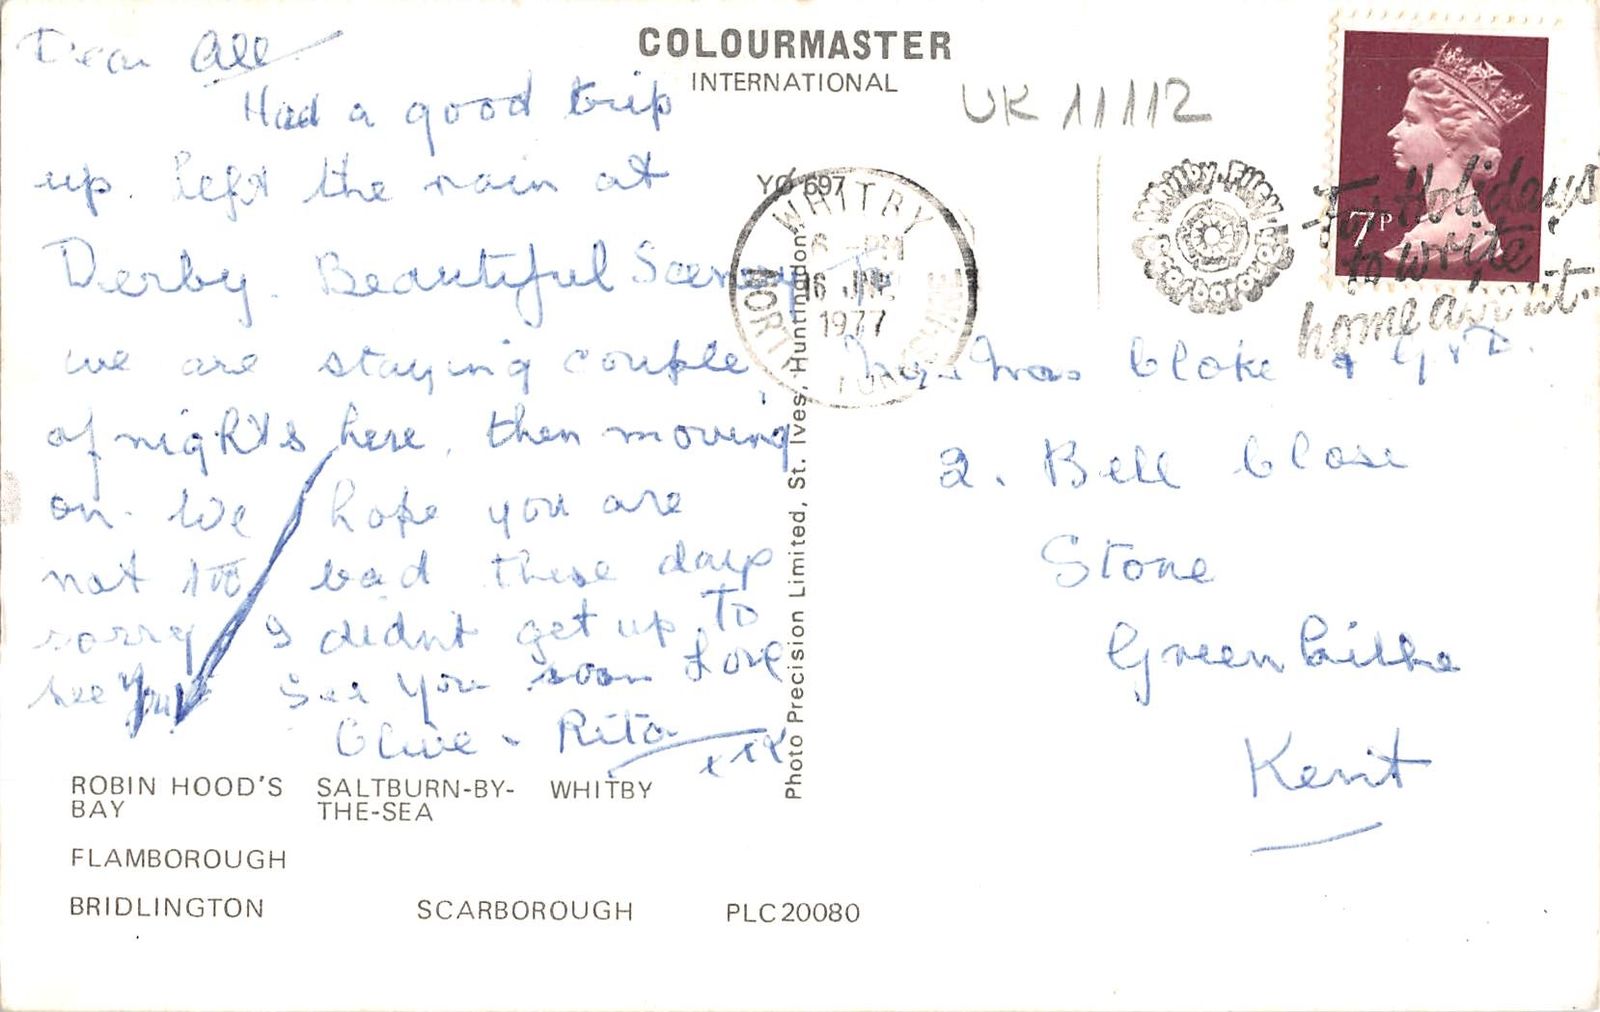 COLOURMASTER
INTERNATIONAL
UK 11112
Dear All
Had a good trip
up. left the rain at
Derby. Beautiful Scenery
we are staying couple
of nights here, then moving
on. We hope you are
not too bad these days
sorry I didnt get up To
see you. See you soon Love
Clive & Rita
xxx
YO 697
WHITBY
6 PM
16 JNE
1977
NORTH YORKSHIRE
Whitby, Filey, Scarborough
For Holidays
to write
home about...
7P
Mr & Mrs Cloke & G & D.
2. Bell Close
Stone
Greenhithe
Kent
Photo Precision Limited, St. Ives, Huntingdon.
ROBIN HOOD'S SALTBURN-BY- WHITBY
BAY THE-SEA
FLAMBOROUGH
BRIDLINGTON SCARBOROUGH PLC20080